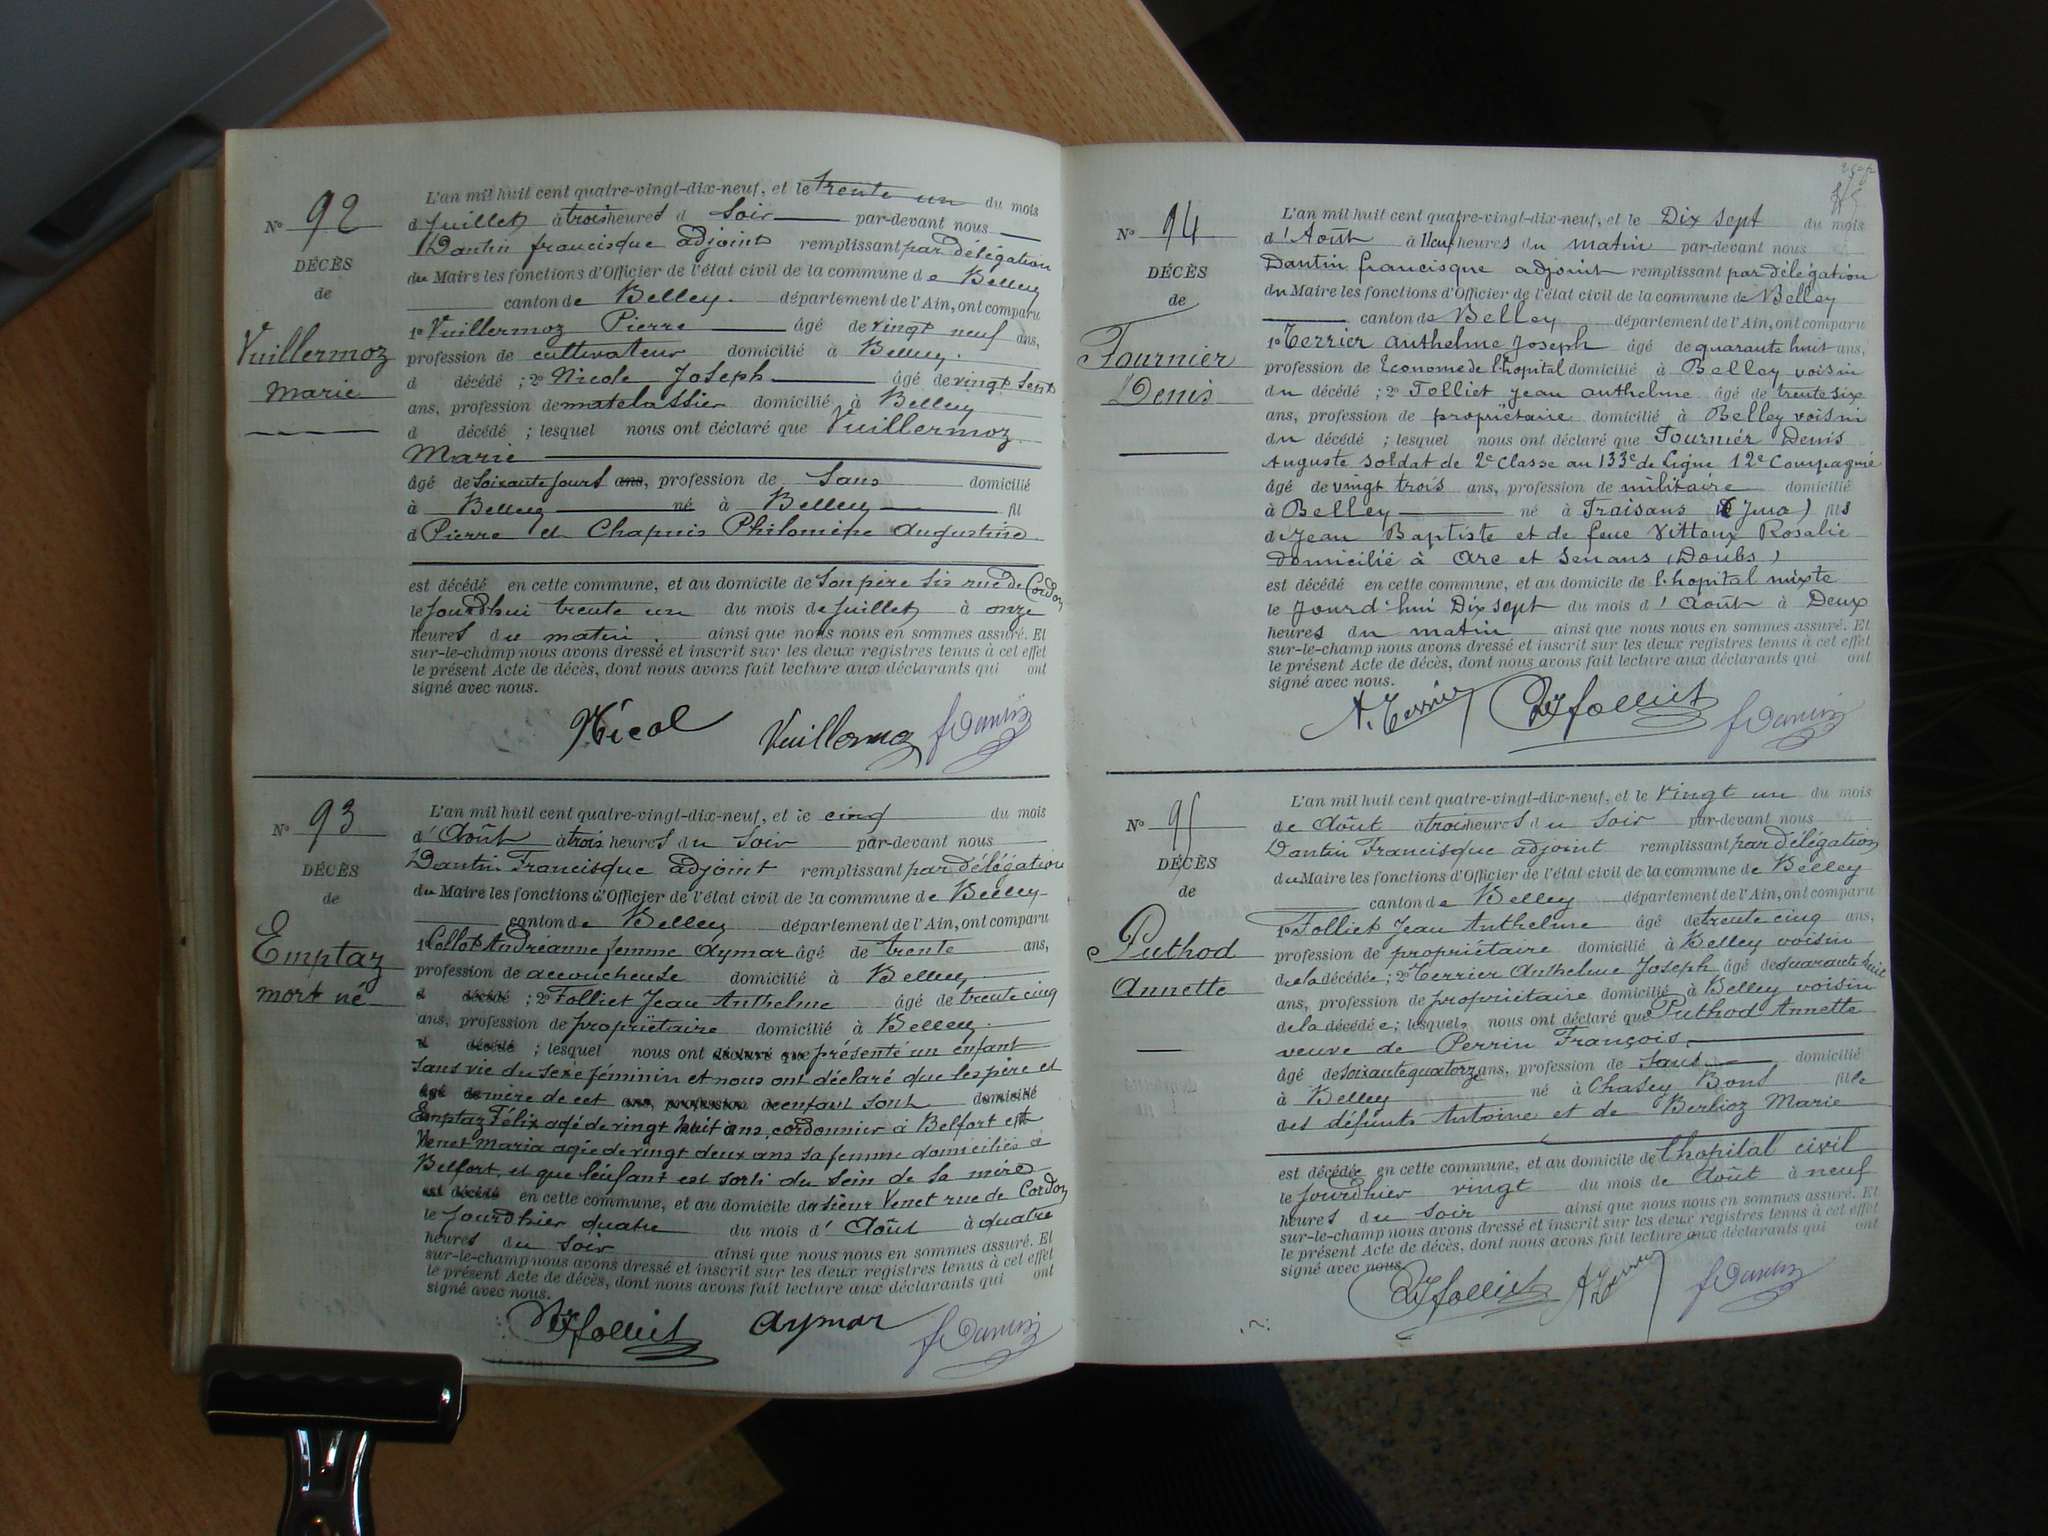 N° 92
DÉCÈS
de
Vuillermoz
Marie
L'an mil huit cent quatre-vingt-dix-neuf, et le trente un du mois
d Juillet à trois heures d Soir par-devant nous
Dantin francisque adjoint remplissant par délégation
du Maire les fonctions d'Officier de l'état civil de la commune de Belley
canton de Belley. département de l'Ain, ont comparu
1° Vuillermoz Pierre âgé de vingt neuf ans,
profession de cultivateur domicilié à Belley.
d décédé ; 2° Nicole Joseph âgé de vingt sept
ans, profession de matelassier domicilié à Belley
d décédé ; lesquel nous ont déclaré que Vuillermoz
Marie
âgé de soixante jours ans, profession de Sans domicilié
à Belley né à Belley fil
d Pierre et Chapuis Philomène Augustine
est décédé en cette commune, et au domicile de Son père sis rue de Cordon
le Jourdhui trente un du mois de Juillet à onze
heures du matin. ainsi que nous nous en sommes assuré. Et
sur-le-champ nous avons dressé et inscrit sur les deux registres tenus à cet effet
le présent Acte de décès, dont nous avons fait lecture aux déclarants qui ont
signé avec nous.
Nicol Vuillermoz f Dantin
N° 93
DÉCÈS
de
Emptaz
mort né
L'an mil huit cent quatre-vingt-dix-neuf, et le cinq du mois
d'Août à trois heures du Soir par-devant nous
Dantin Francisque adjoint remplissant par délégation
du Maire les fonctions d'Officier de l'état civil de la commune de Belley
canton de Belley département de l'Ain, ont comparu
1° Collot Andréanne femme Aymar âgé de trente ans,
profession de accoucheuse domicilié à Belley
d décédé ; 2° Folliet Jean Anthelme âgé de trente cinq
ans, profession de propriétaire domicilié à Belley.
d décédé ; lesquel nous ont déclaré que présenté un enfant
sans vie du sexe féminin et nous ont déclaré que les père et
âgé de mère de cet ans, profession de enfant sont domicilié
Emptaz Félix agé de vingt huit ans, cordonnier à Belfort et
Venet Maria agée de vingt deux ans sa femme domiciliés à
Belfort, et que l'enfant est sorti du sein de sa mère
est décédé en cette commune, et au domicile du sieur Venet rue de Cordon
le Jourdhier quatre du mois d'Août à quatre
heures du Soir ainsi que nous nous en sommes assuré. Et
sur-le-champ nous avons dressé et inscrit sur les deux registres tenus à cet effet
le présent Acte de décès, dont nous avons fait lecture aux déclarants qui ont
signé avec nous.
Folliet Aymar f Dantin
N° 94
DÉCÈS
de
Fournier
Denis
L'an mil huit cent quatre-vingt-dix-neuf, et le Dix sept du mois
d'Août à Neuf heures du matin par-devant nous
Dantin francisque adjoint remplissant par délégation
du Maire les fonctions d'Officier de l'état civil de la commune de Belley
canton de Belley département de l'Ain, ont comparu
1° Terrier Anthelme Joseph âgé de quarante huit ans,
profession de Econome de l'hopital domicilié à Belley voisin
du décédé ; 2° Folliet Jean Anthelme âgé de trente six
ans, profession de propriétaire domicilié à Belley voisin
du décédé ; lesquel nous ont déclaré que Fournier Denis
Auguste Soldat de 2e Classe au 133e de Ligne 12e Compagnie
âgé de vingt trois ans, profession de militaire domicilié
à Belley né à Fraisans (Jura) fils
de Jean Baptiste et de feue Vittoux Rosalie
domicilié à Arc et Senans (Doubs)
est décédé en cette commune, et au domicile de l'hopital mixte
le Jourd'hui Dix sept du mois d'Août à Deux
heures du matin ainsi que nous nous en sommes assuré. Et
sur-le-champ nous avons dressé et inscrit sur les deux registres tenus à cet effet
le présent Acte de décès, dont nous avons fait lecture aux déclarants qui ont
signé avec nous.
A. Terrier Folliet f Dantin
N° 95
DÉCÈS
de
Puthod
Annette
L'an mil huit cent quatre-vingt-dix-neuf, et le vingt un du mois
de Août à trois heures du Soir par-devant nous
Dantin Francisque adjoint remplissant par délégation
du Maire les fonctions d'Officier de l'état civil de la commune de Belley
canton de Belley département de l'Ain, ont comparu
1° Folliet Jean Anthelme âgé de trente cinq ans,
profession de propriétaire domicilié à Belley voisin
de la décédée ; 2° Terrier Anthelme Joseph âgé de quarante huit
ans, profession de propriétaire domicilié à Belley voisin
de la décédée ; lesquels nous ont déclaré que Puthod Annette
veuve de Perrin François,
âgé de soixante quatorze ans, profession de sans domicilié
à Belley né à Chasey Bons fille
des défunts Antoine et de Berlioz Marie
est décédée en cette commune, et au domicile de l'hopital civil
le Jourdhier vingt du mois de Août à neuf
heures du soir ainsi que nous nous en sommes assuré. Et
sur-le-champ nous avons dressé et inscrit sur les deux registres tenus à cet effet
le présent Acte de décès, dont nous avons fait lecture aux déclarants qui ont
signé avec nous.
Folliet A Terrier f Dantin